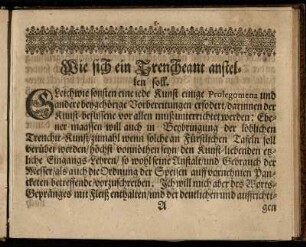 Wie sich ein Trencheant anstel-
len soll.
Gleichwie sonsten eine jede Kunst einige Prolegomena und
andere beygehörige Vorbereitungen erfodert, darinnen der
Kunst-beflissene vor allen muß unterrichtet werden: Ebe-
ner maassen will auch in Beybringung der löblichen
Trenchir-Kunst, zumahl wenn solche an Fürstlichen Tafeln soll
verübet werden, höchst vonnöthen seyn, den Kunst-liebenden et-
liche Eingangs-Lehren, so wohl seine Anstalt, und Gebrauch der
Messer, als auch die Ordnung der Speisen auff vornehmen Pan-
cketen betreffende, vorzuschreiben. Ich will mich aber des Worts-
Gepränges mit Fleiß enthalten, und der deutlichen und auffrichti-
A gen